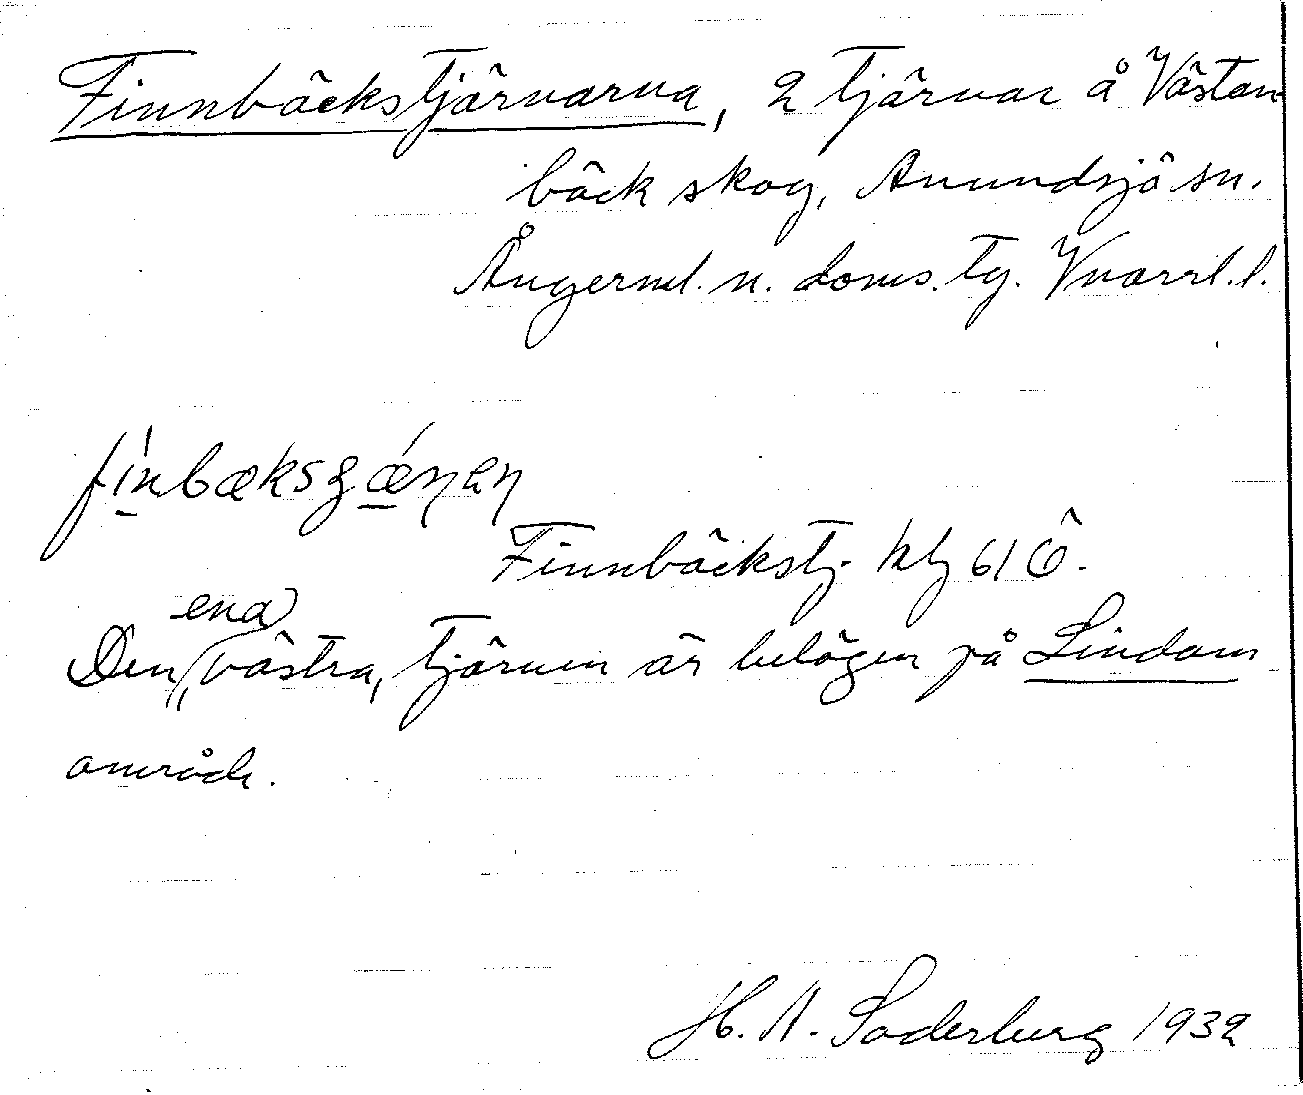 Finnbäckstjärnarna, 2 tjärnar å Västan
bäck skog, Anundsjö sn.
Ångerml. n. doms. tg. Vnorrl. l.
Finnbäckstj. ktj 61 Ö.
Den ena, västra, tjärnen är belägen på Lindom
område.
H. A. Söderberg 1932